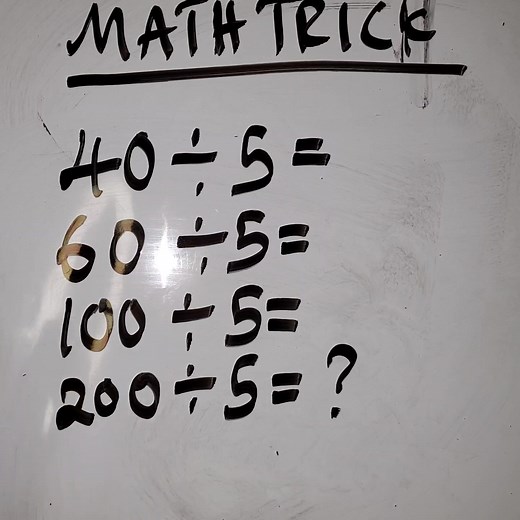 MATH TRICK
40 ÷ 5 =
60 ÷ 5 =
100 ÷ 5 =
200 ÷ 5 = ?